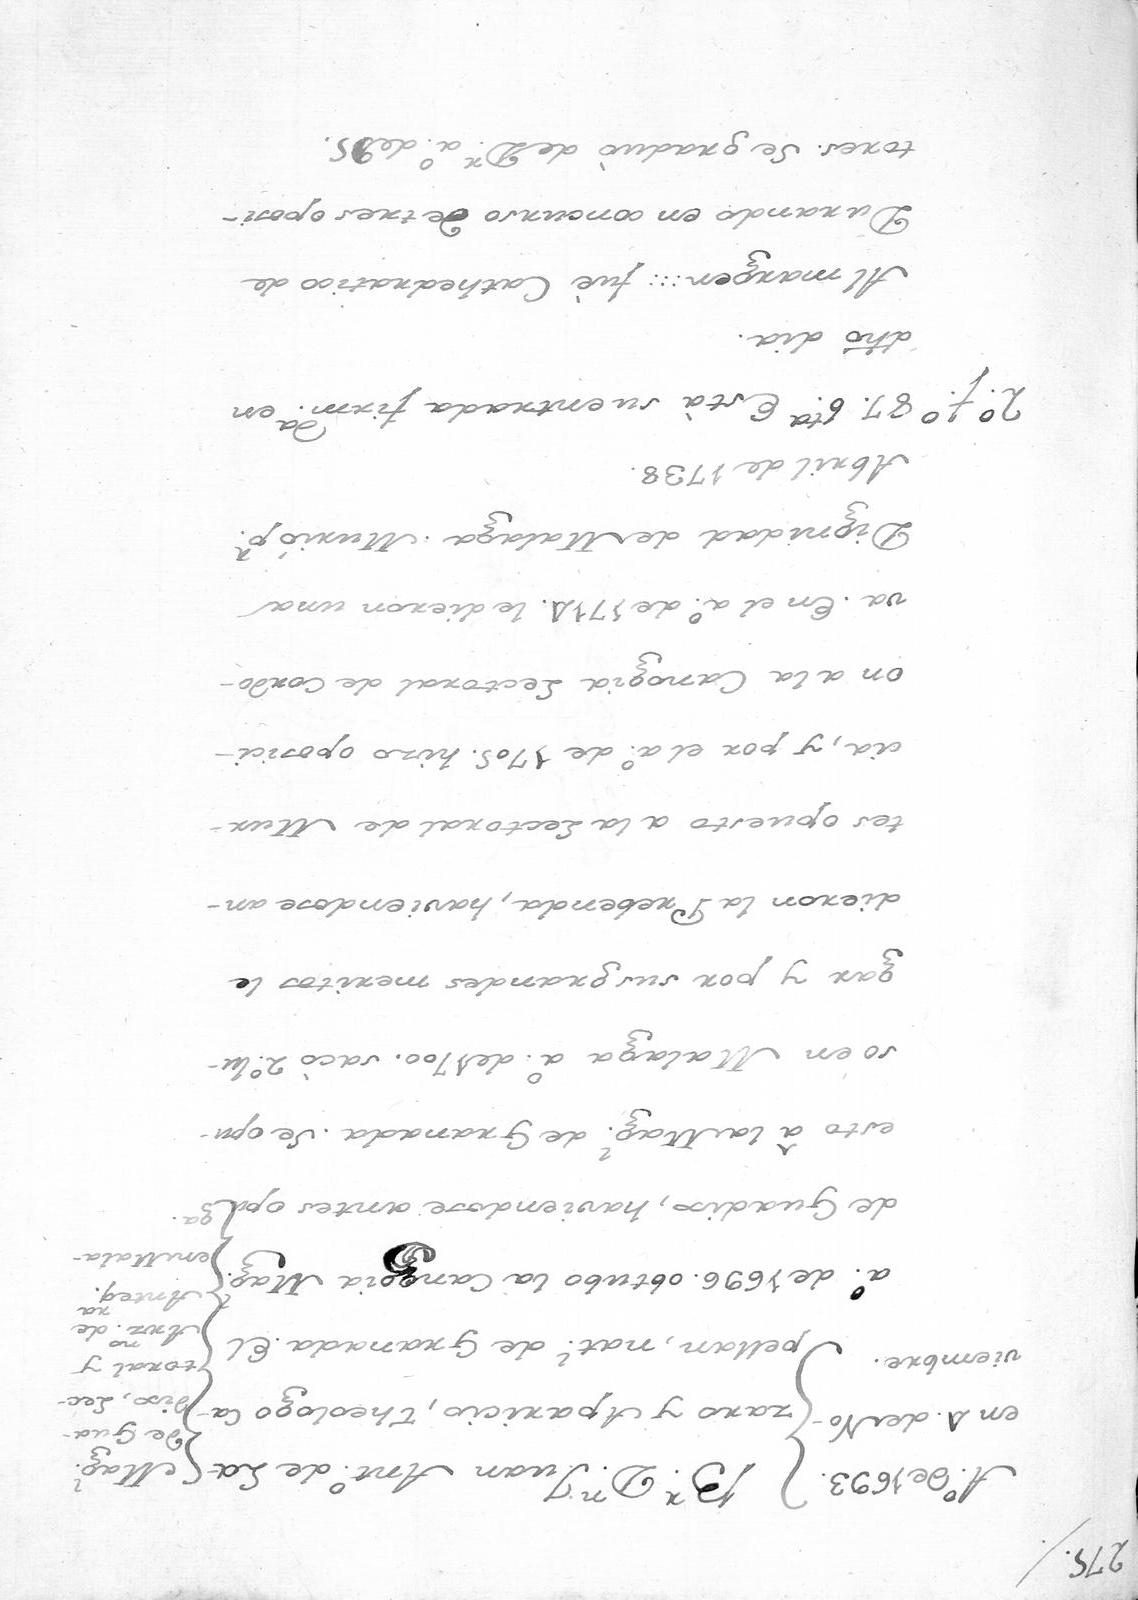 275.
Aº. de 1693.
en 4. de No-
viembre.
Bʳ. Dⁿ. Juan Antº. de La-
zaro y Aparicio, Theologo Ca-
pellan, natˡ. de Granada. El
aº. de 1696. obtubo la Canogia Magˡ.
de Guadix, haviendose antes opu-
esto â la Magˡ. de Granada. Se opu-
so en Malaga aº. de 1700. sacò 2º. lu-
gar y por sus grandes meritos le
dieron la Prebenda, haviendose an-
tes opuesto a la Lectoral de Mur-
cia, y por el aº. de 1705. hizo oposici-
on a la Canogia Lectoral de Cordo-
va. En el aº. de 1714. le dieron una
Dignidad de Malaga. Muriò pʳ.
Abril de 1738.
Magˡ.
de Gua-
dix, Lec-
toral y
Arzⁿº. de
Anteqʳᵃ.
en Mala-
ga.
2º. fº. 87. bᵗᵃ. Està su entrada firmᵈᵃ. en
dhō dia.
Al margen::: fuè Cathedratico de
Durando en concurso de tres oposi-
tores. Se graduò de Dʳ. aº. de 95.